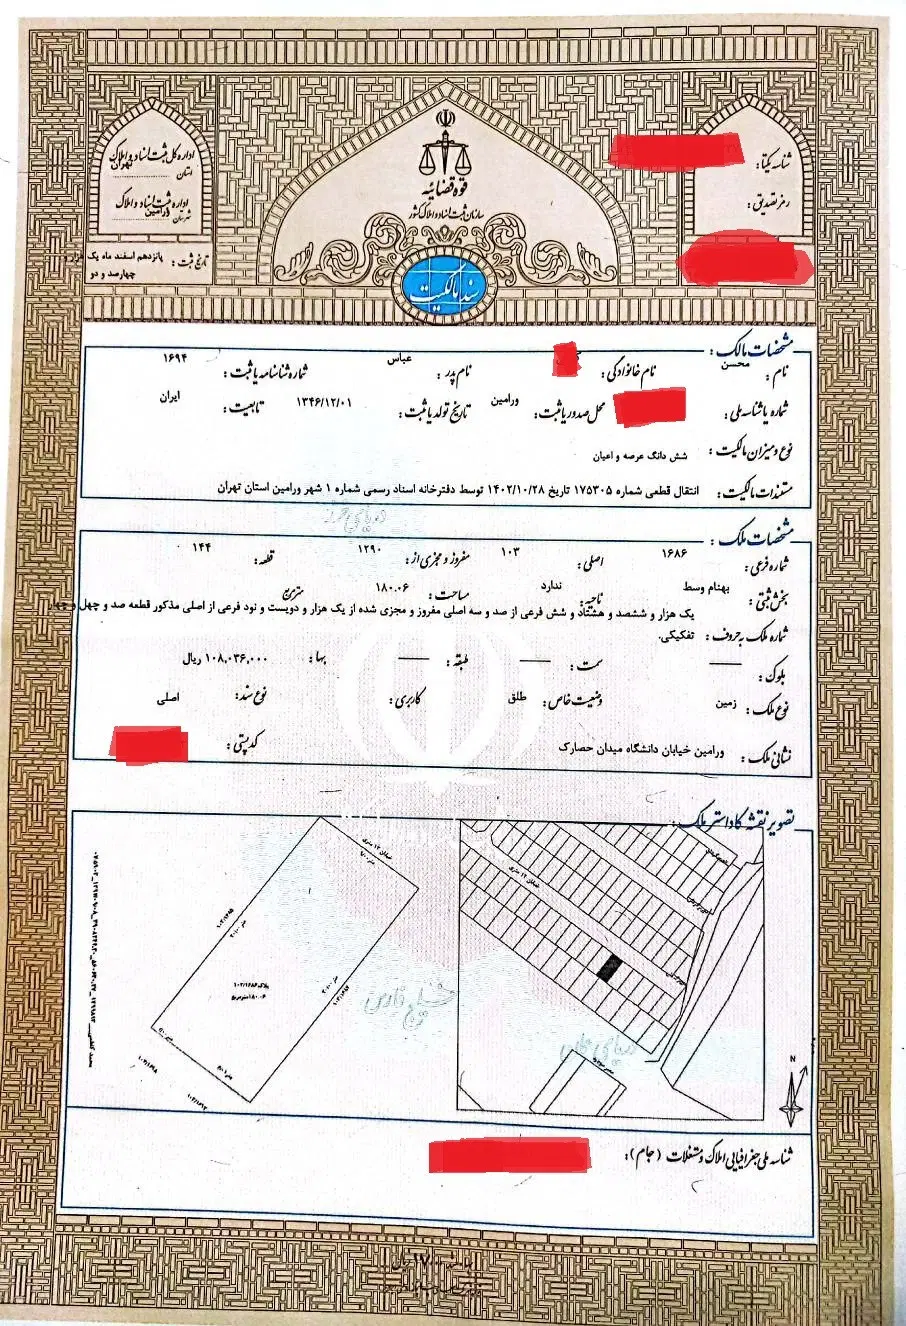 اداره کل ثبت اسناد و املاک
استان تهران
اداره ثبت اسناد و املاک
شهرستان ورامین
تاریخ ثبت : پانزدهم اسفند ماه یک هزار و
چهارصد و دو
قوه قضائیه
سازمان ثبت اسناد و املاک کشور
سند مالکیت
شناسه یکتا :
رمز تصدیق :
مشخصات مالک :
نام : محسن نام خانوادگی : نام پدر : عباس شماره شناسنامه یا ثبت : ۱۶۹۴
شماره یا شناسه ملی : محل صدور یا ثبت : ورامین تاریخ تولد یا ثبت : ۱۳۴۶/۱۲/۰۱ تابعیت : ایران
نوع و میزان مالکیت : شش دانگ عرصه و اعیان
مستندات مالکیت : انتقال قطعی شماره ۱۷۵۳۰۵ تاریخ ۱۴۰۲/۱۰/۲۸ توسط دفترخانه اسناد رسمی شماره ۱ شهر ورامین استان تهران
مشخصات ملک :
شماره فرعی : ۱۶۸۶ اصلی : ۱۰۳ مفروز و مجزی از : ۱۲۹۰ قطعه : ۱۴۴
بخش ثبتی : بهنام وسط ناحیه : ندارد مساحت : ۱۸۰.۰۶ مترمربع
شماره ملک به حروف : یک هزار و ششصد و هشتاد و شش فرعی از صد و سه اصلی مفروز و مجزی شده از یک هزار و دویست و نود فرعی از اصلی مذکور قطعه صد و چهل و چهار
تفکیکی.
بلوک : —— سمت : —— طبقه : —— بها : ۱۰۸,۰۳۶,۰۰۰ ریال
نوع ملک : زمین وضعیت خاص : طلق کاربری : نوع سند : اصلی
نشانی ملک : ورامین خیابان دانشگاه میدان حصارک کد پستی :
تصویر نقشه کاداستر ملک :
خیابان ۱۲ متری
پلاک ۱۰۳/۱۶۸۶
۱۸۰.۰۶ مترمربع
خیابان ۱۲ متری
خلیج فارس
N
شناسه ملی جغرافیایی املاک و مستغلات (جام) :